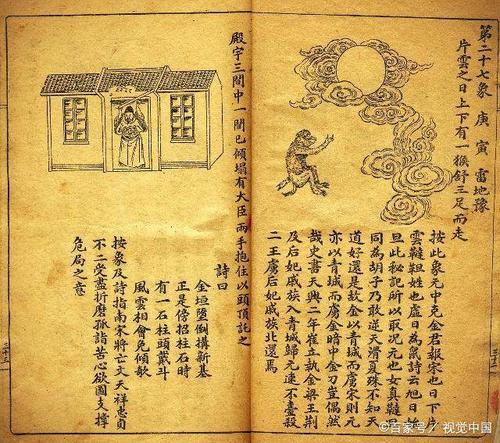 第二十七象 庚寅 雷地豫
片雲之日上下有一猴舒三足而走
按此象元中克金君報宋也日下片
雲韃靼姓也虛日為鼠詩云旭日始
旦此秘記所以取况元也女真韃靼
同為胡子乃敢逆天滑夏殊不知天
道好還是故金以青城而虜宋則元
亦以青城而虜金暗中金刀豈偶然
哉史書天興二年崔立執金梁王荆
及后妃戚族入青城歸元速不臺殺
二王虜后妃戚族北還焉
殿宇三間中一間已傾塌有大臣兩手抱住以頭頂託之
詩曰
金垣墮倒搆新基
正是傍招柱石時
有一石柱頭戴斗
風雲相會免傾欹
按象及詩指南宋將亡文天祥忠貞
不二受盡折磨孤詣苦心欲圖支撐
危局之意
©百家号/视觉中国